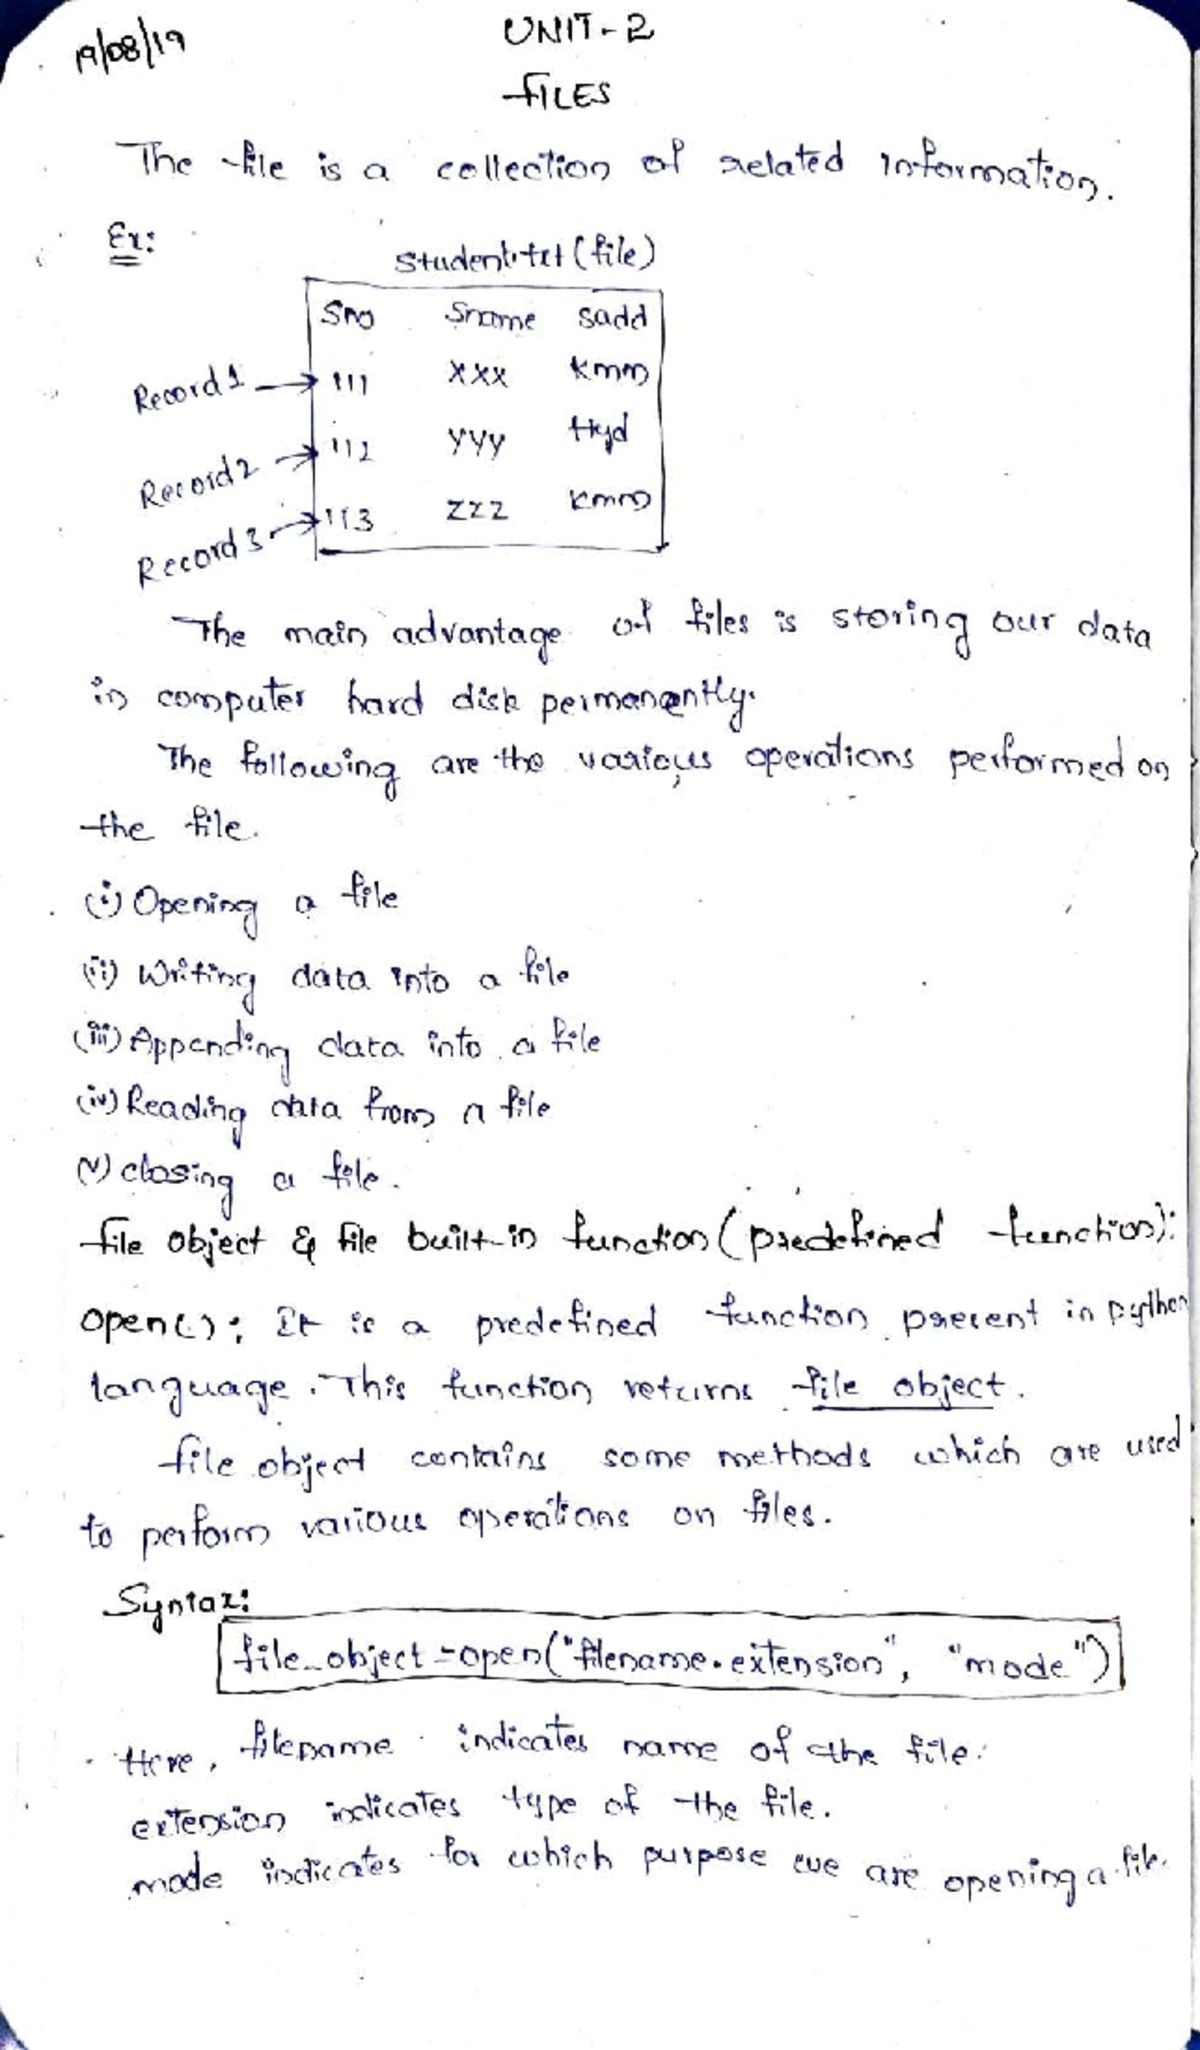 19/08/19
UNIT-2
FILES
The file is a collection of related information.
Ex:
student.txt (file)
Sno Sname sadd
Record 1 → 111 XXX kmm
Record 2 → 112 YYY Hyd
Record 3 → 113 ZZZ kmm
The main advantage of files is storing our data
in computer hard disk permanently.
The following are the various operations performed on
the file.
(i) Opening a file
(ii) Writing data into a file
(iii) Appending data into a file
(iv) Reading data from a file
(v) closing a file.
file object & file built-in function (predefined function):
open(): It is a predefined function present in python
language. This function returns file object.
file object contains some methods which are used
to perform various operations on files.
Syntax:
file_object = open("filename.extension", "mode")
Here, filename indicates name of the file.
extension indicates type of the file.
mode indicates for which purpose we are opening a file.